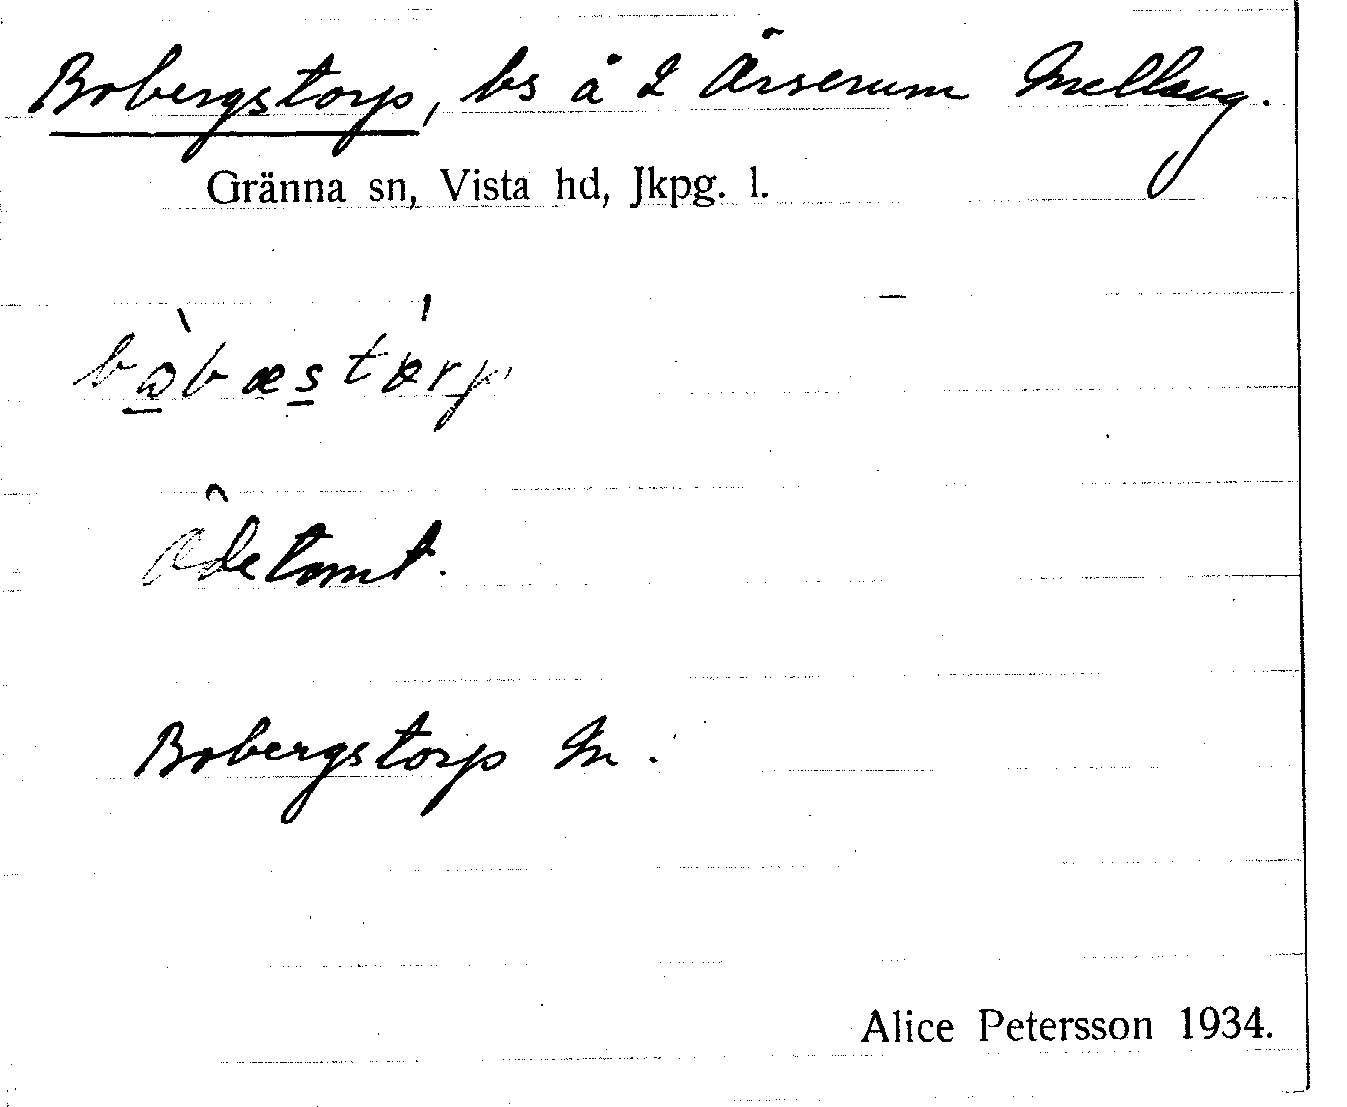 Bobergstorp, bs å 2 Örserum Mellang.
Gränna sn, Vista hd, Jkpg. l.
Ödetomt.
Bobergstorp M.
Alice Petersson 1934.